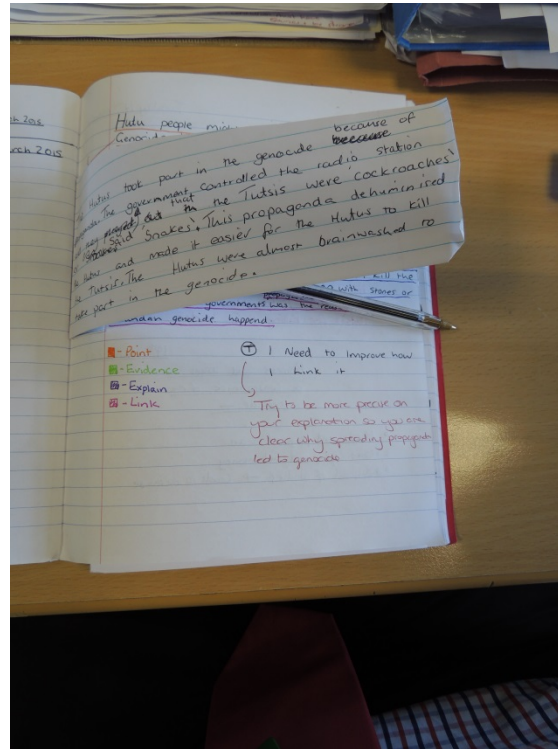 ch 2015
arch 2015
Hutu people
Genocid
Hutus took part in the genocide because of because
The government controlled the radio station
that the Tutsis were 'cockroaches'
said 'Snakes'. This propaganda dehuminised
the Hutus and made it easier for the Hutus to kill
Tutsis. The Hutus were almost brainwashed to
part in the genocide.
kill the
with stones or
governments was the
genocide happend.
- Point
- Evidence
- Explain
- Link
T I Need to improve how
I Link it
Try to be more precise on
your explanation so you are
clear why spreading
led to genocide